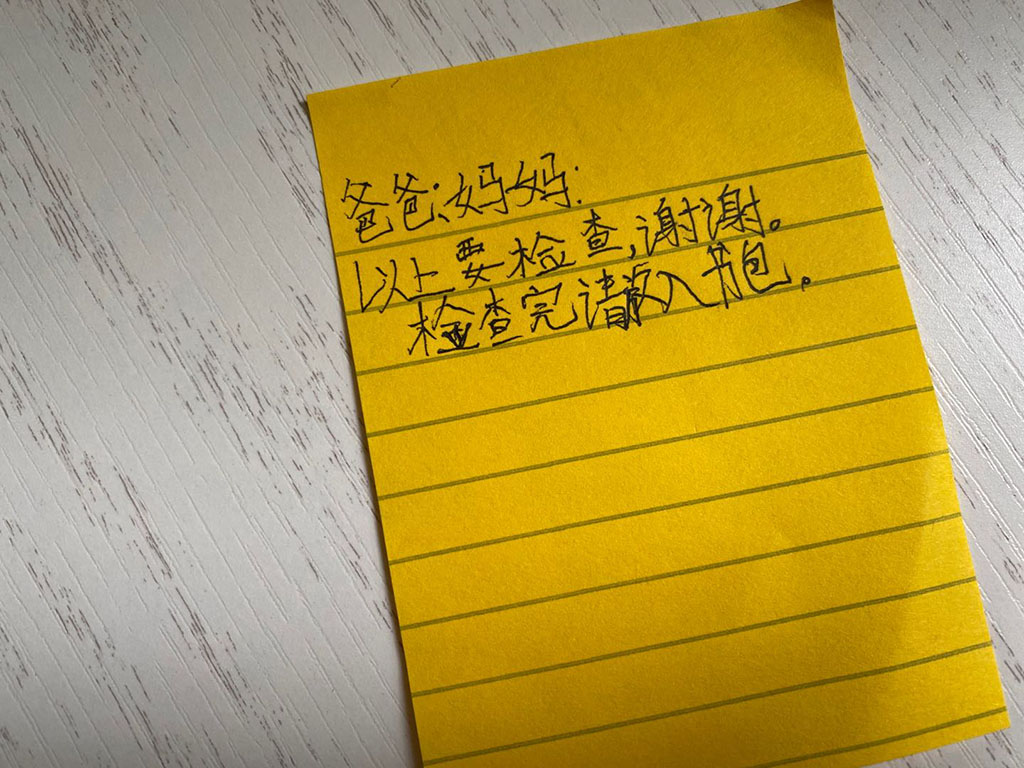 爸爸、妈妈:
以上要检查,谢谢。
检查完请放入书包。